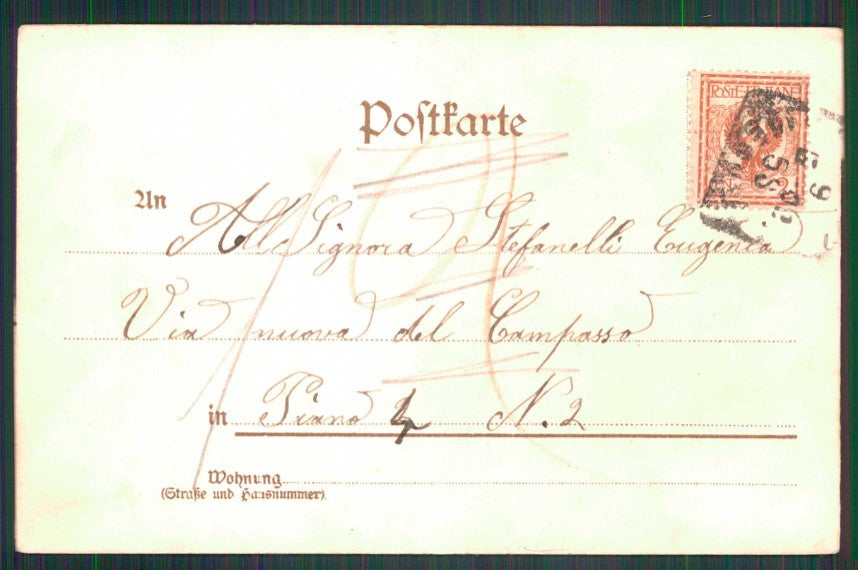 Postkarte
POSTE ITALIANE
2
An
All Signora Stefanelli Eugenia
Via nuova del Campasso
in Piano 4 N. 2
Wohnung
(Straße und Hausnummer)